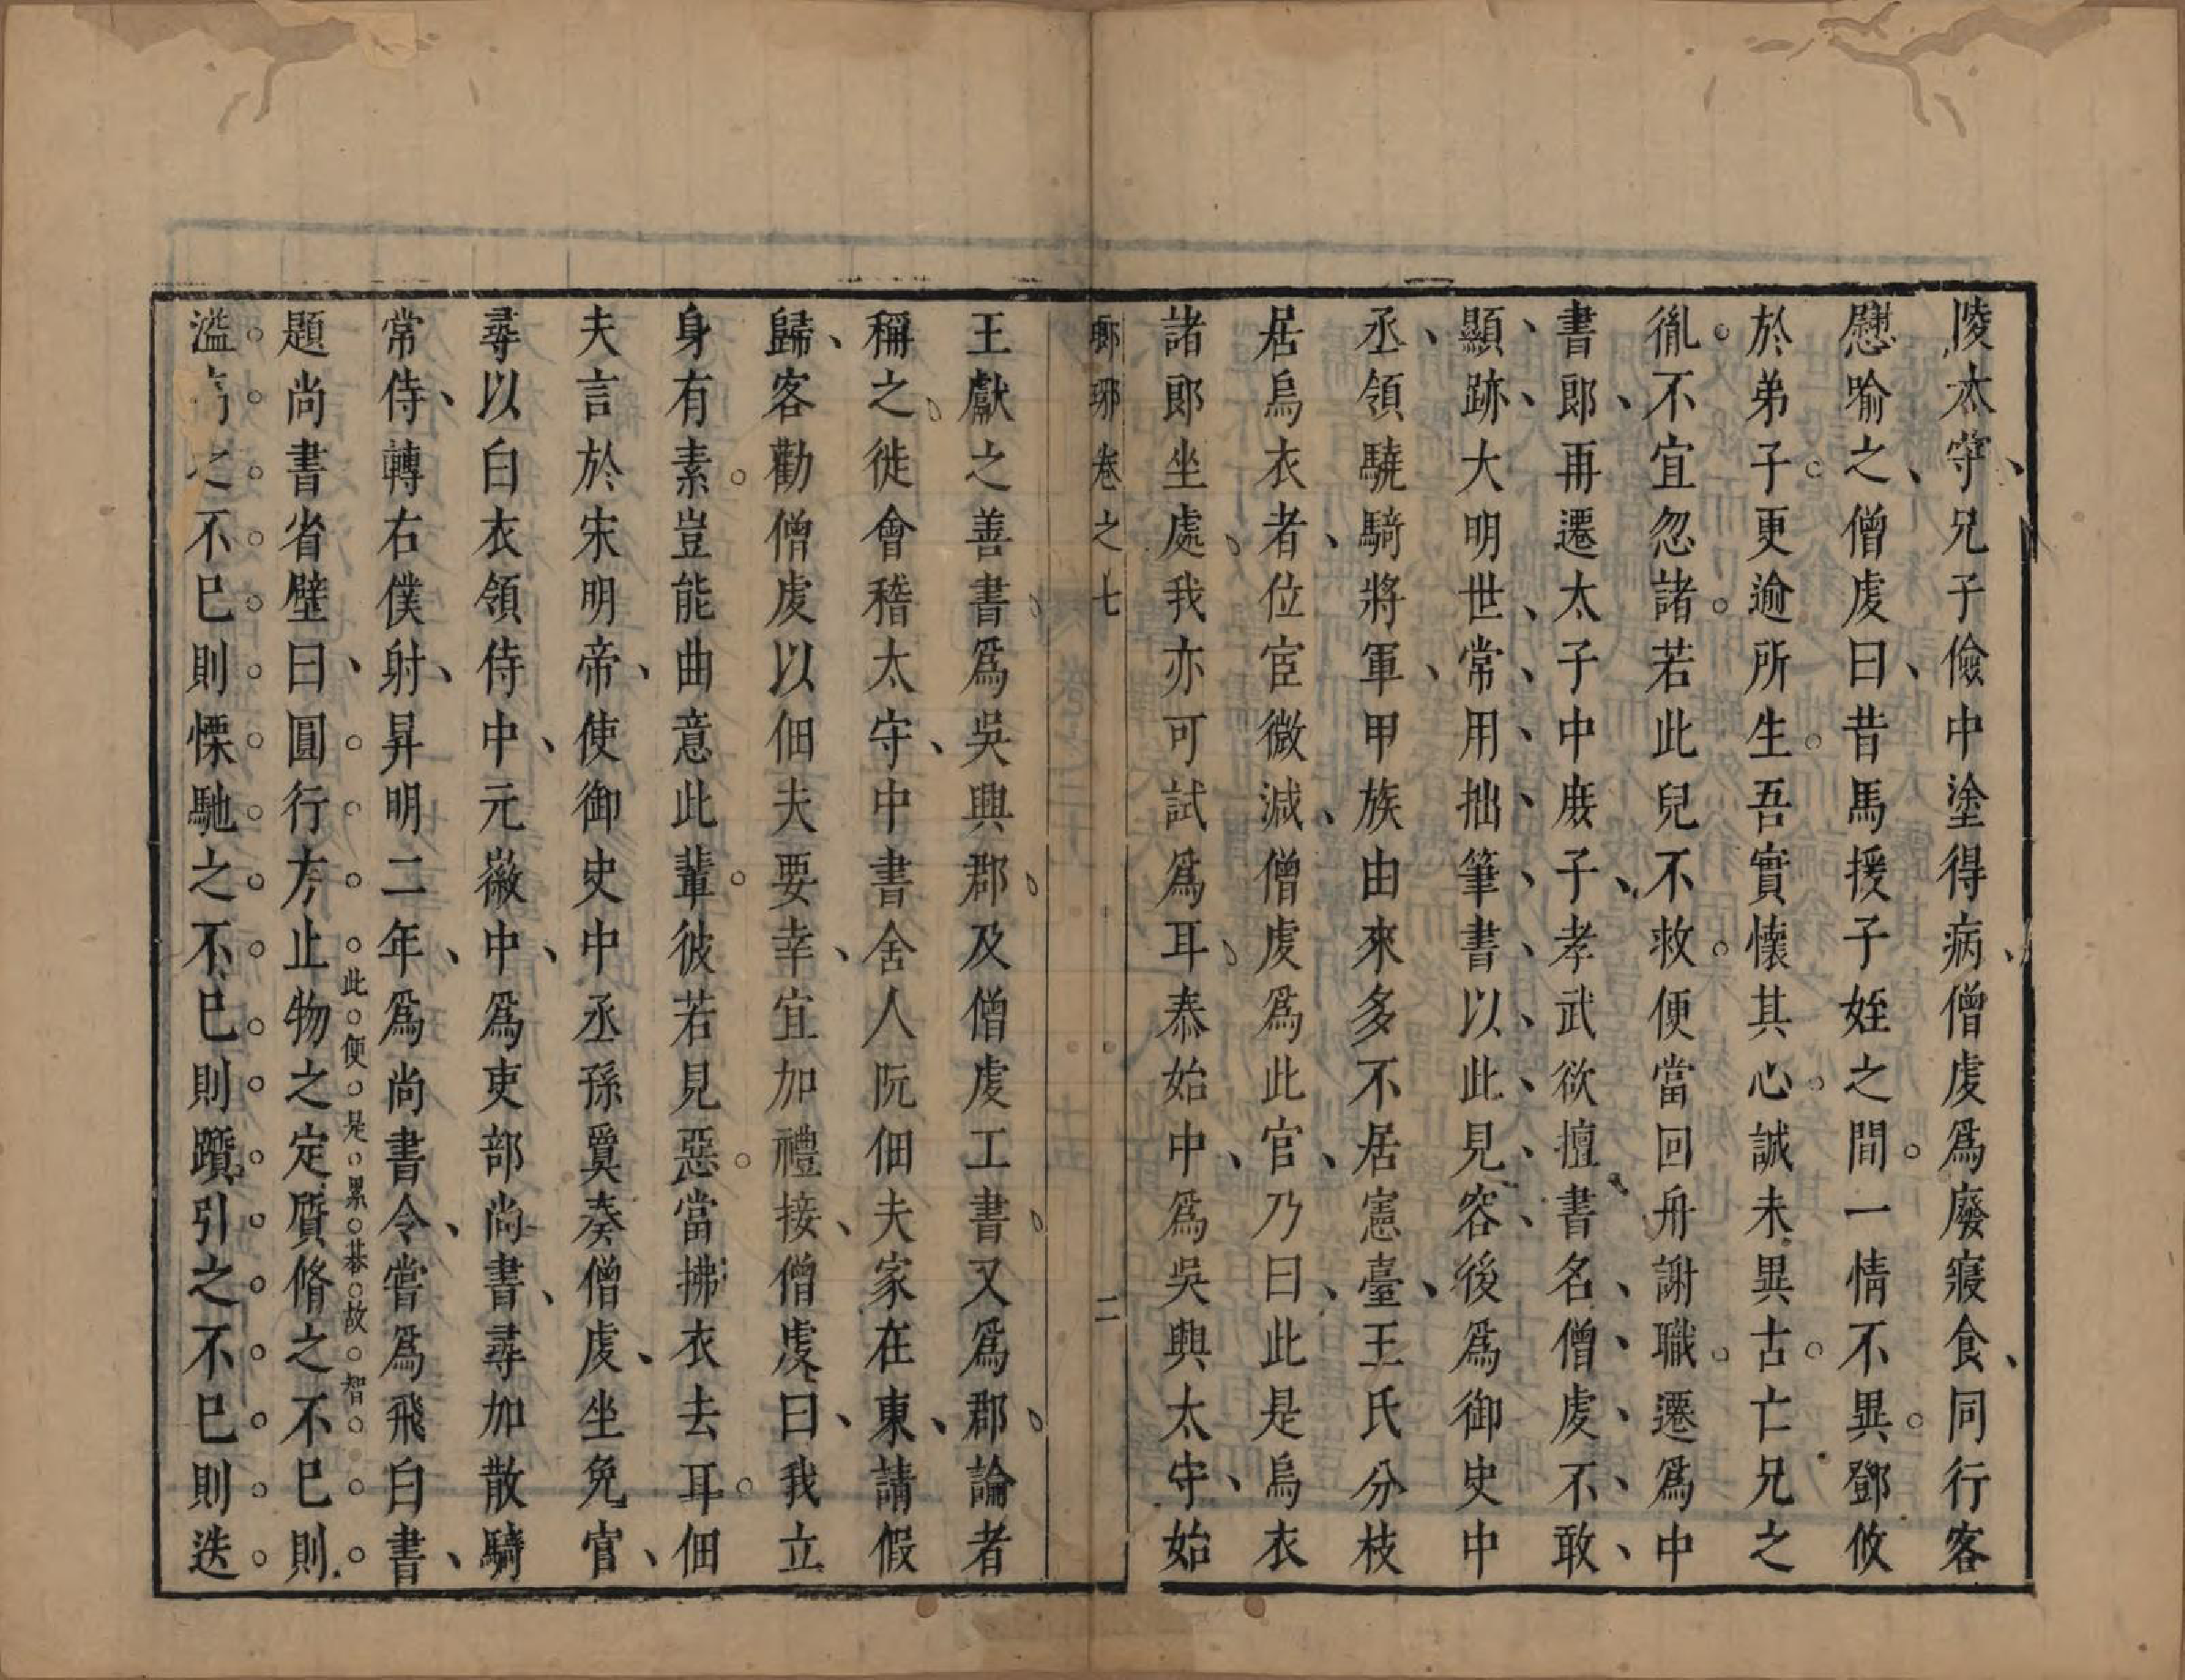 陵太守兄子儉中塗得病僧虔爲廢寢食同行客
慰喻之僧虔曰昔馬援子姪之間一情不異鄧攸
於弟子更逾所生吾實懷其心誠未異古亡兄之
胤不宜忽諸若此兒不救便當回舟謝職遷爲中
書郎再遷太子中庶子孝武欲擅書名僧虔不敢
顯跡大明世常用拙筆書以此見容後爲御史中
丞領驍騎將軍甲族由來多不居憲臺王氏分枝
居烏衣者位宦微減僧虔爲此官乃曰此是烏衣
諸郎坐處我亦可試爲耳泰始中爲吳興太守始
瑯琊卷之七 二
王獻之善書爲吳興郡及僧虔工書又爲郡論者
稱之徙會稽太守中書舍人阮佃夫家在東請假
歸客勸僧虔以佃夫要幸宜加禮接僧虔曰我立
身有素豈能曲意此輩彼若見惡當拂衣去耳佃
夫言於宋明帝使御史中丞孫敻奏僧虔坐免官
尋以白衣領侍中元徽中爲吏部尚書尋加散騎
常侍轉右僕射昇明二年爲尚書令嘗爲飛白書
題尚書省壁曰圓行方止物之定質脩之不巳則
此便是累碁故智
溢高之不巳則慄馳之不巳則躓引之不巳則迭